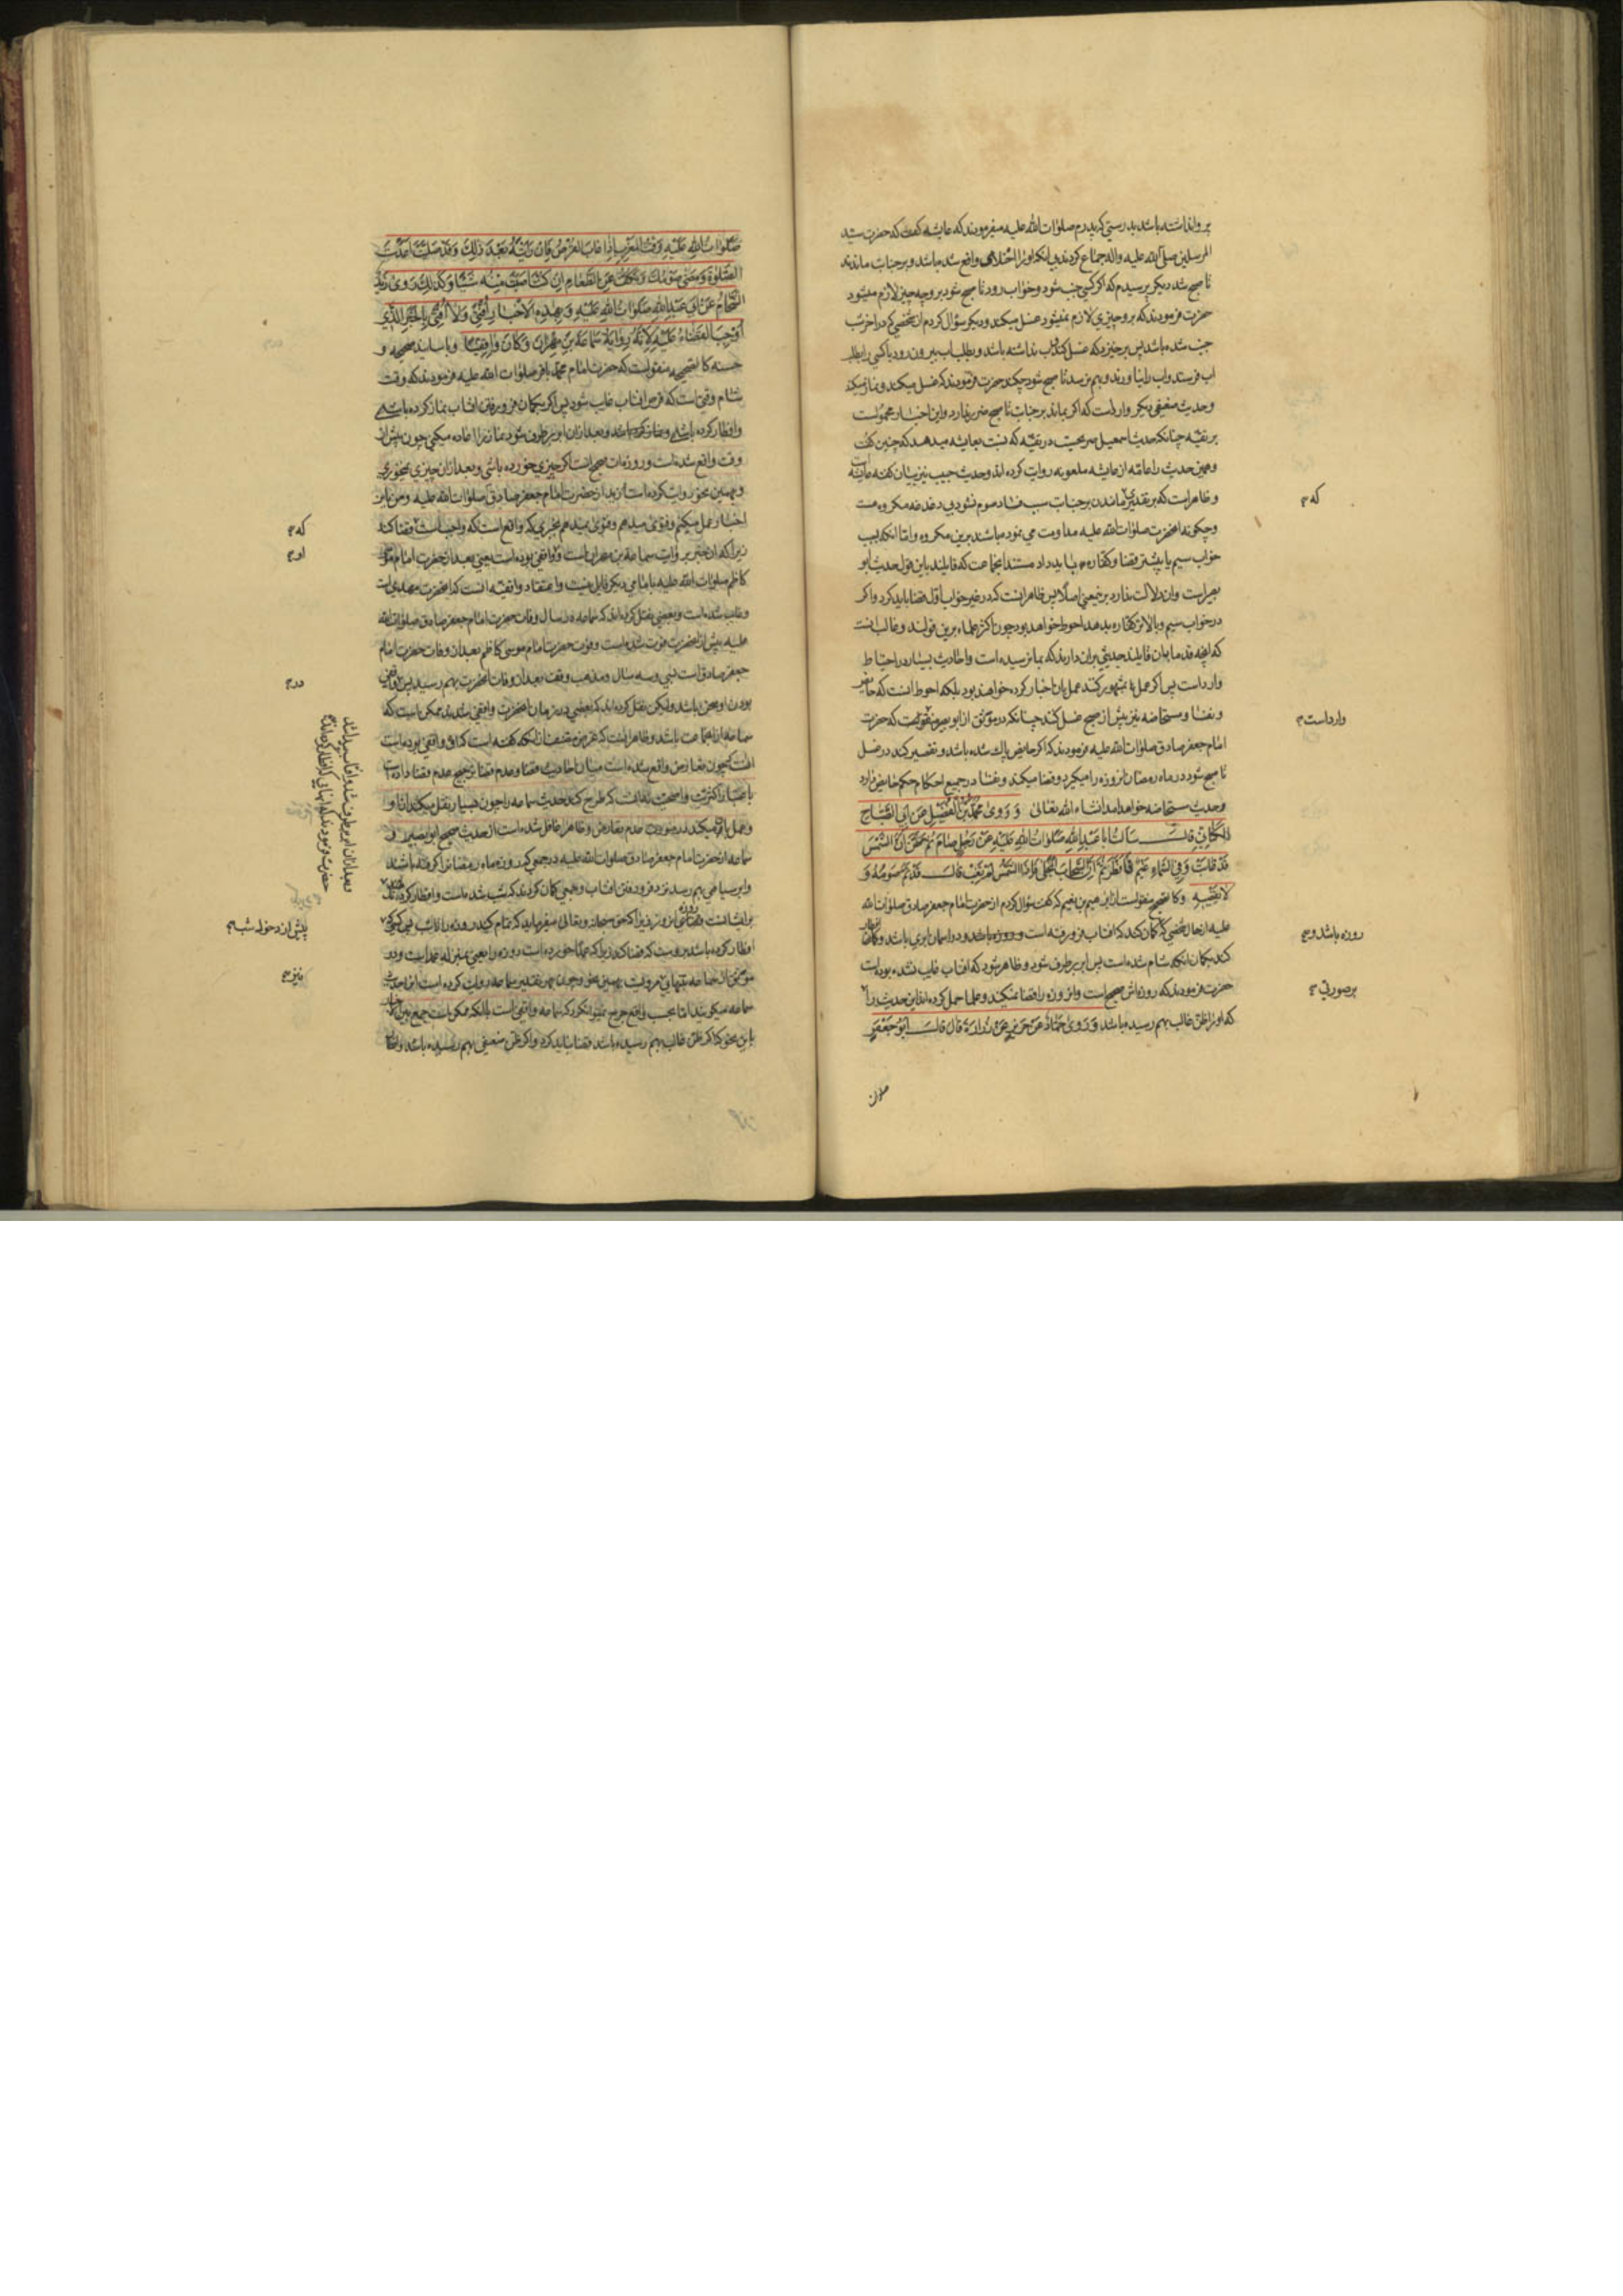 بر او انداشته باشد بدرستی که پدرم صلوات الله علیه میفرمودند که عایشه گفت که حضرت سید
المرسلین صلی الله علیه واله جماع کردند بی انکه او را احتلامی واقع شده باشد و بر جنابت ماندند
تا صبح شد دیگر پرسیدم که اگر کسی جنب شود و خواب رود تا صبح شود بر او چه چیز لازم میشود
حضرت فرمودند که بر او چیزی لازم نمیشود غسل میکند و دیگر سؤال کردم از شخصی که در اخر شب
جنب شده باشد پس برخیزد که غسل کند اب نداشته باشد و بطلب اب بیرون رود یا کسی را بطلب
اب فرستد و اب را نیاورند و بهم نرسد تا صبح شود چکند حضرت فرمودند که غسل میکند و نماز میکند
وحدیث ضعیفی دیگر وارد است که اگر بماند بر جنابت تا صبح ضرر ندارد و این اخبار محمولست
بر تقیه چنانکه حدیث اسمعیل صریحست در تقیه که نسبت بعایشه میدهد که چنین گفت
وهمین حدیث را عامه از عایشه ملعونه روایت کرده اند وحدیث حبیب نیز
وظاهر است که بر تقدیری ماندن بر جنابت سبب فساد صوم نشود بی دغدغه مکروه هست
که
وچگونه انحضرت صلوات الله علیه مداومت می نموده باشند برین مکروه واما انکه بسبب
خواب سیم یا بیشتر قضا وکفاره باید داد مستند انجماعت که قایلند باین قول حدیث ابو
بصیر است وان دلالت ندارد برین معنی اصلا پس ظاهر انست که در غیر خواب اول قضا باید کرد واگر
در خواب سیم وبالاتر کفاره بدهد احوط خواهد بود چون اکثر علماء برین قولند وغالب انست
که انچه قدما بان قایلند حدیثی بران دارند که بما نرسیده است واحادیث بسیار در احتیاط
وارد است پس اگر عمل بمشهور کنند عمل بان اخبار کرده خواهند بود بلکه احوط انست که حایض
ونفسا ومستحاضه نیز پیش از صبح غسل کنند چنانکه در موثق از ابو بصیر منقولست که حضرت
وارد است
امام جعفر صادق صلوات الله علیه فرمودند که اگر حایض پاک شده باشد وتقصیر کند در غسل
تا صبح شود در ماه رمضان انروزه را میگیرد وقضا میکند ونفسا در جمیع احکام حکم حایض دارد
وحدیث مستحاضه خواهد امد انشاء الله تعالی وَرَوی مُحَمَّدُ بْنُ الْفُضَیْلِ عَنْ اَبِی الصَّبَّاحِ
الْکَنَانِیِّ قالَ سَاَلْتُ اَبا عَبْدِ اللهِ صَلَواتُ اللهِ عَلَیْهِ عَنْ رَجُلٍ صامَ ثُمَّ ظَنَّ اَنَّ الشَّمْسَ
قَدْ غابَتْ وَفِی السَّماءِ غَیْمٌ فَاَفْطَرَ ثُمَّ اِنَّ السَّحابَ انْجَلی فَاِذَا الشَّمْسُ لَمْ تَغِبْ فَقالَ قَدْ تَمَّ صَوْمُهُ وَ
لا یَقْضِیهِ وکالصحیح منقولست از ابراهیم بن نعیم که گفت سؤال کردم از حضرت امام جعفر صادق صلوات الله
علیه از حال شخصی که گمان کند که افتاب فرو رفته است و روزه باشد و در اسمان ابری باشد و
روزه باشد و
کند بگمان انکه شام شده است پس ابر بر طرف شود وظاهر شود که افتاب غایب نشده بوده است
حضرت فرمودند که روزه اش صحیح است وانروزه را قضا نمیکند وعلما حمل کرده اند این حدیث را
بر صورتی
که او را ظن غالب بهم رسیده باشد وَرَوی حَمّادٌ عَنْ حَرِیزٍ عَنْ زُرارَةَ قالَ قالَ اَبُو جَعْفَرٍ
صلوات
صَلَواتُ اللهِ عَلَیْهِ وَقْتُ الْمَغْرِبِ اِذا غابَ الْقُرْصُ فَاِنْ رَاَیْتَهُ بَعْدَ ذلِکَ وَقَدْ صَلَّیْتَ اَعَدْتَ
الصَّلوةَ وَمَضی صَوْمُکَ وَتَکُفُّ عَنِ الطَّعامِ اِنْ کُنْتَ اَصَبْتَ مِنْهُ شَیْئًا وَکَذلِکَ رَوی زَیْدٌ
الشَّحّامُ عَنْ اَبِی عَبْدِ اللهِ صَلَواتُ اللهِ عَلَیْهِ وَبِهذِهِ الْاَخْبارِ اُفْتِی وَلا اُفْتِی بِالْخَبَرِ الَّذِی
اَوْجَبَ الْقَضاءَ عَلَیْهِ لِاَنَّهُ رِوایَةُ سَماعَةَ بْنِ مِهْرانَ وَکانَ واقِفِیًّا وباسانید صحیحه و
حسنه کالصحیحه منقولست که حضرت امام محمد باقر صلوات الله علیه فرمودند که وقت
شام وقتی است که قرص افتاب غایب شود پس اگر بگمان فرو رفتن افتاب نماز کرده باشی
وافطار کرده باشی وبعد ازان ابر بر طرف شود نماز را اعاده میکنی چون پیش از
وقت واقع شده است وروزه ات صحیح است اگر چیزی خورده باشی وبعد ازان چیزی نمیخوری
وبهمین نحو روایت کرده است زید از حضرت امام جعفر صادق صلوات الله علیه ومن باین
اخبار عمل میکنم وفتوی میدهم وفتوی نمیدهم بخبری که واقع است که واجب است قضا کند
که
زیرا که ان خبر بروایت سماعة بن مهران است و واقفی بوده است یعنی بعد از حضرت امام موسی
او
کاظم صلوات الله علیه بامامی دیگر قایل نیست واعتقاد واقفیه انست که انحضرت مهدی است
وغایب شده است وبعضی نقل کرده اند که سماعه در سال وفات حضرت امام جعفر صادق صلوات الله
علیه پیش از انحضرت فوت شده است وفوت حضرت امام موسی کاظم بعد از وفات حضرت امام
جعفر صادق است بسی وسه سال ومذهب وقف بعد از وفات انحضرت بهم رسید پس واقفی
در
بودن او محض باشد ولیکن نقل کرده اند که بعضی در زمان انحضرت واقفی شدند ممکن است که
سماعه ازانجماعت باشد وظاهر انست که غرض مصنف از انکه گفته است که او واقفی بوده است
انست که چون تعارض واقع شده است میان احادیث قضا وعدم قضا ترجیح عدم قضا داده است
باعتبار اکثریت واصحیت نه انست که طرح کند حدیث سماعه را چون بسیار نقل میکند از او
وعمل میکند در صورت عدم تعارض وظاهرا غافل شده است از حدیث صحیح ابو بصیر و
سماعه از حضرت امام جعفر صادق صلوات الله علیه در جمعی که روزه ماه رمضان را گرفته باشند
وابر سیاهی بهم رسد نزد فرو رفتن افتاب وجمعی گمان کردند که شب شده است وافطار کردند
وبعد ازان ابر بر طرف شد وافتاب پیدا شد
حضرت فرمودند که انهائی که افطار کرده اند
بر ایشانست قضای انروز زیرا که حق سبحانه وتعالی میفرماید که تمام کنید روزه را تا شب پس کسی که
پیش از دخول شب
افطار کرده باشد بر اوست که قضا کند زیرا که عمدا خورده است روزه را یعنی بمنزله عمد است و در
موثق از سماعه بتنهائی مرویست بهمین نحو وچون بهر تقدیر سماعه روایت کرده است این حدیث
نیز
سماعه میگویند اما بحسب واقع جرح نمیتوان کرد که سماعه واقفی است با انکه ممکن است جمع بین
باین نحو که اگر ظن غالب بهم رسیده باشد قضا نباید کرد واگر ظن ضعیفی بهم رسیده باشد